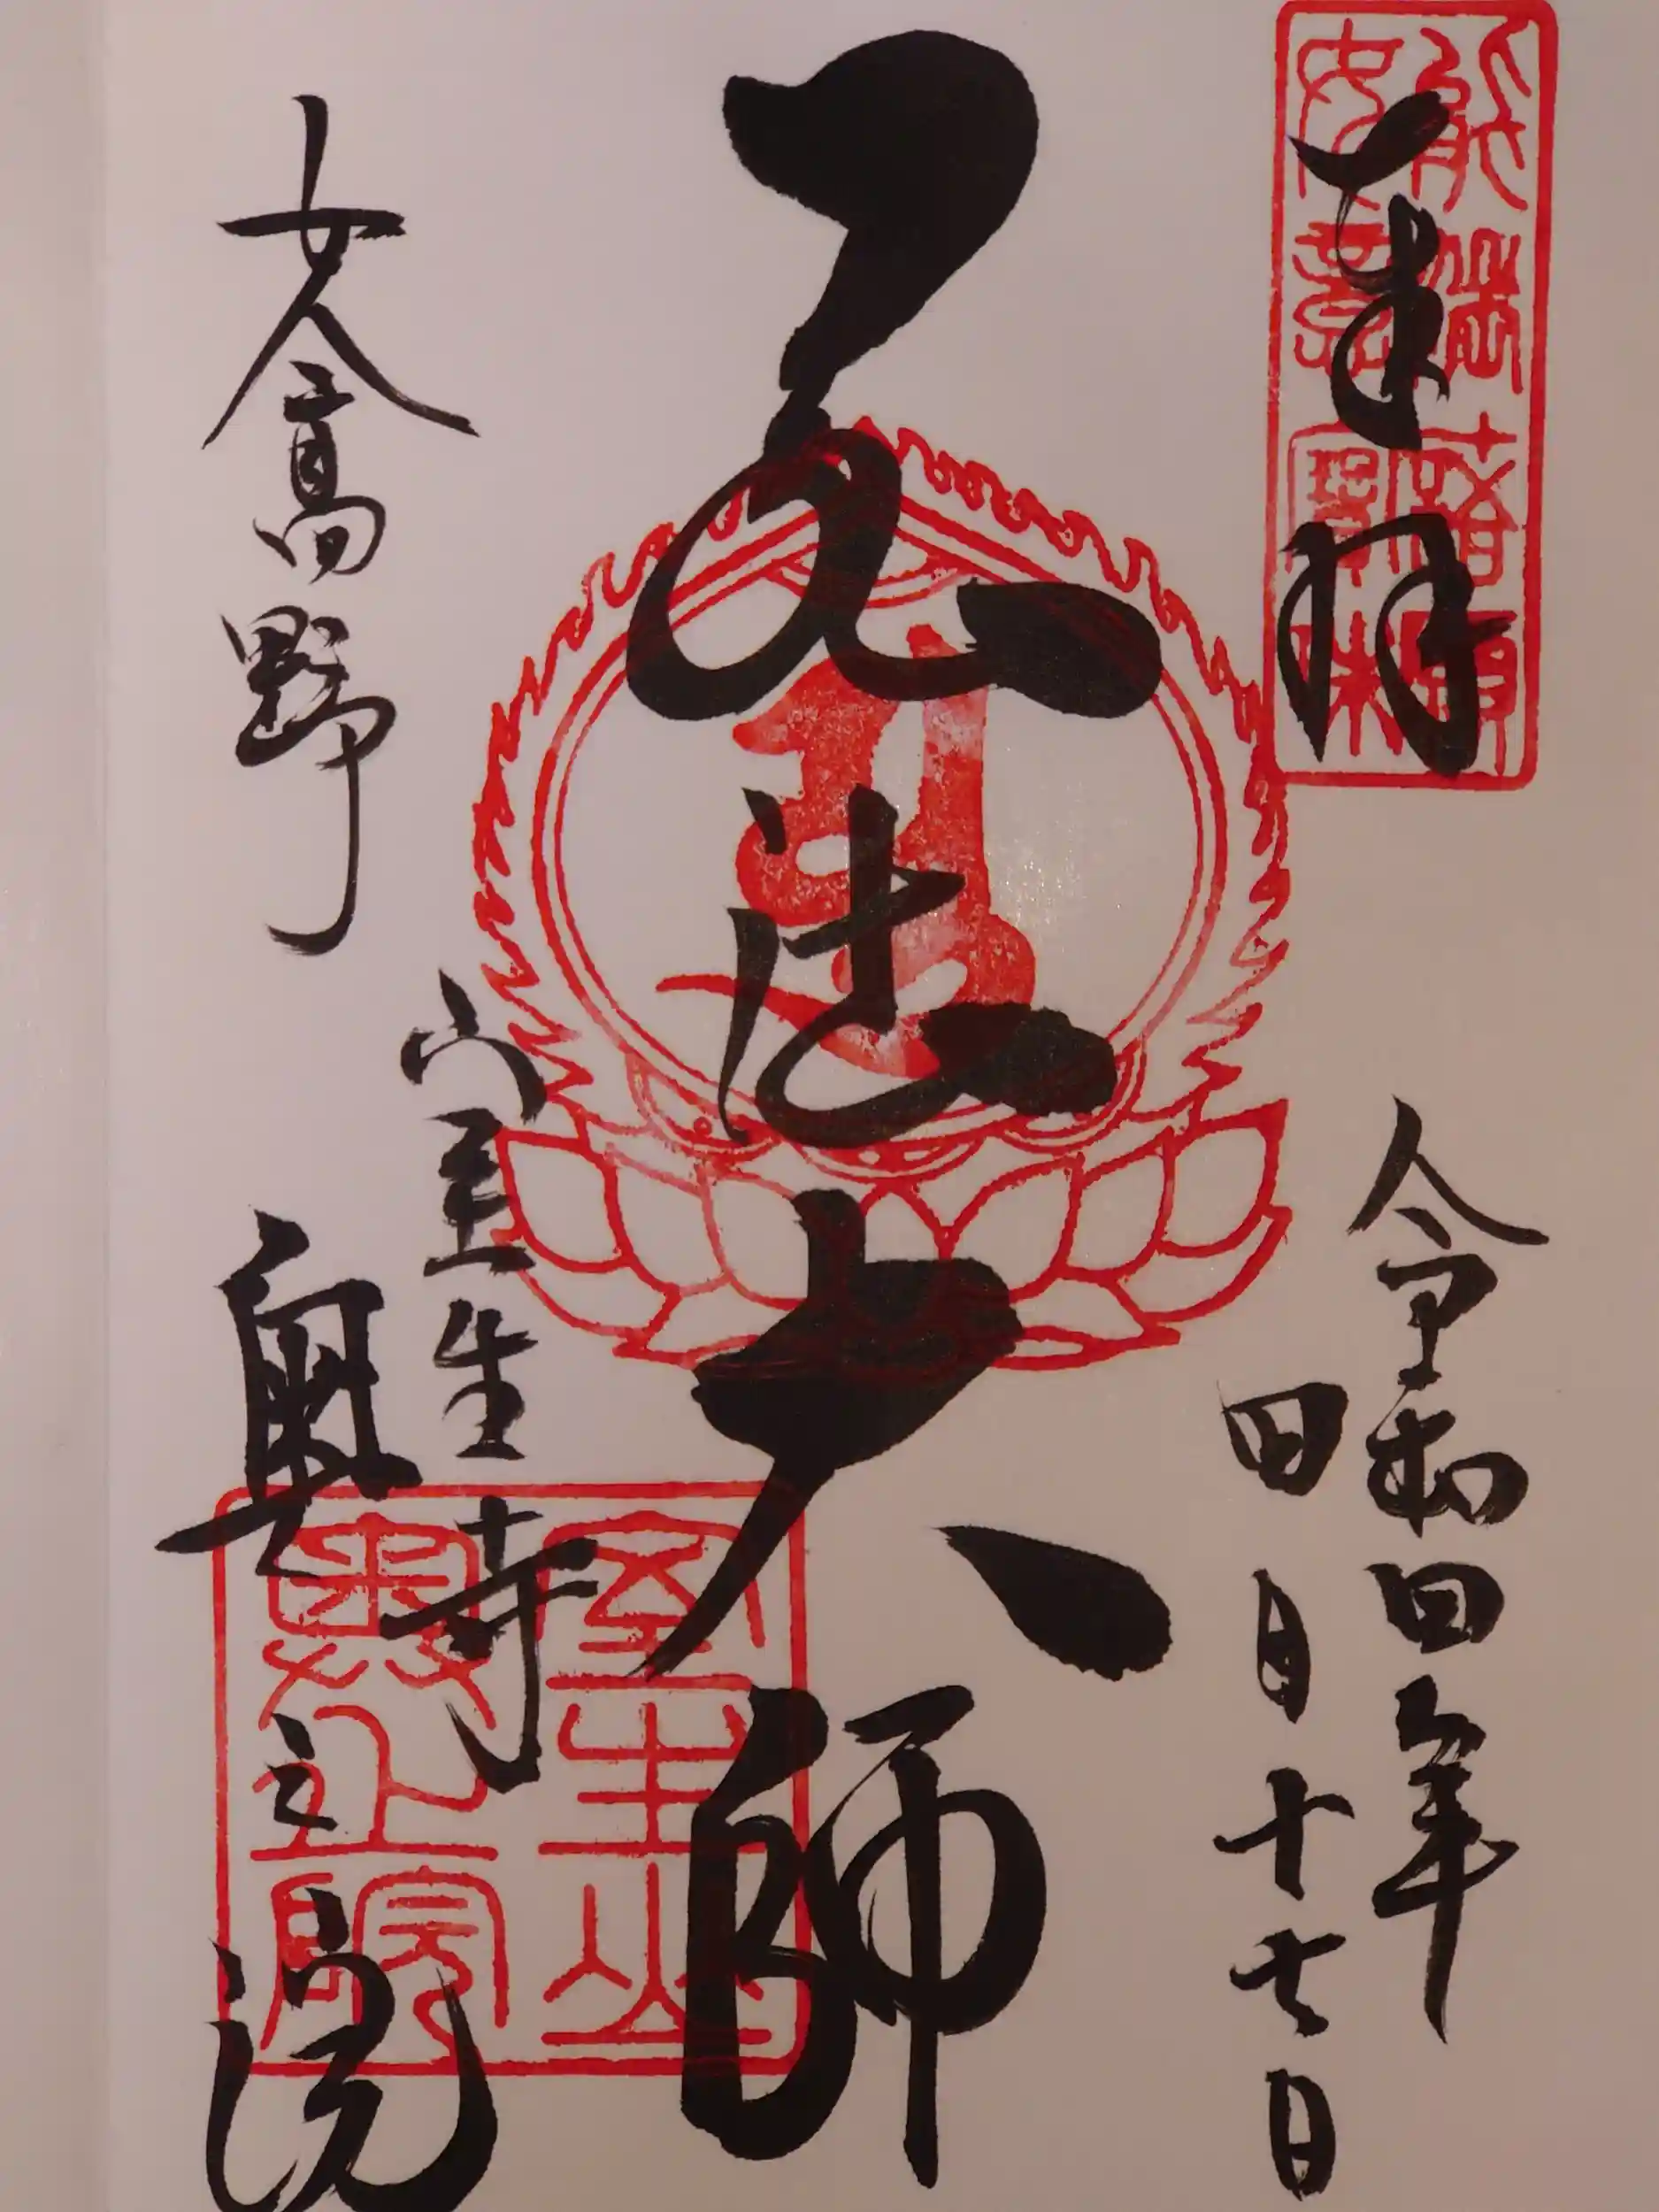 奉拝
令和四年
四月十七日
弘法大師
女人高野
室生寺
奥之院
室生山
奥之院